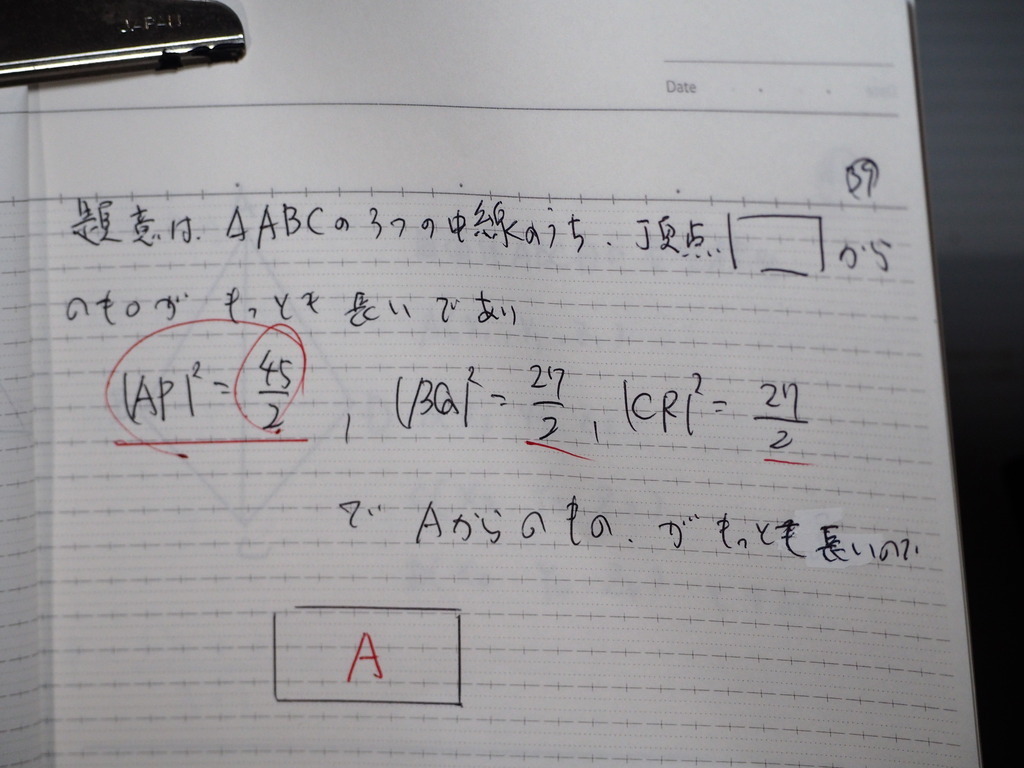 JAPAN
Date
39
題意は、△ABCの3つの中線のうち、頂点 から
のものがもっとも長いであり
|AP|² = 45/2 , |BQ|² = 27/2 , |CR|² = 27/2
で Aからのもの、がもっとも長いので
A